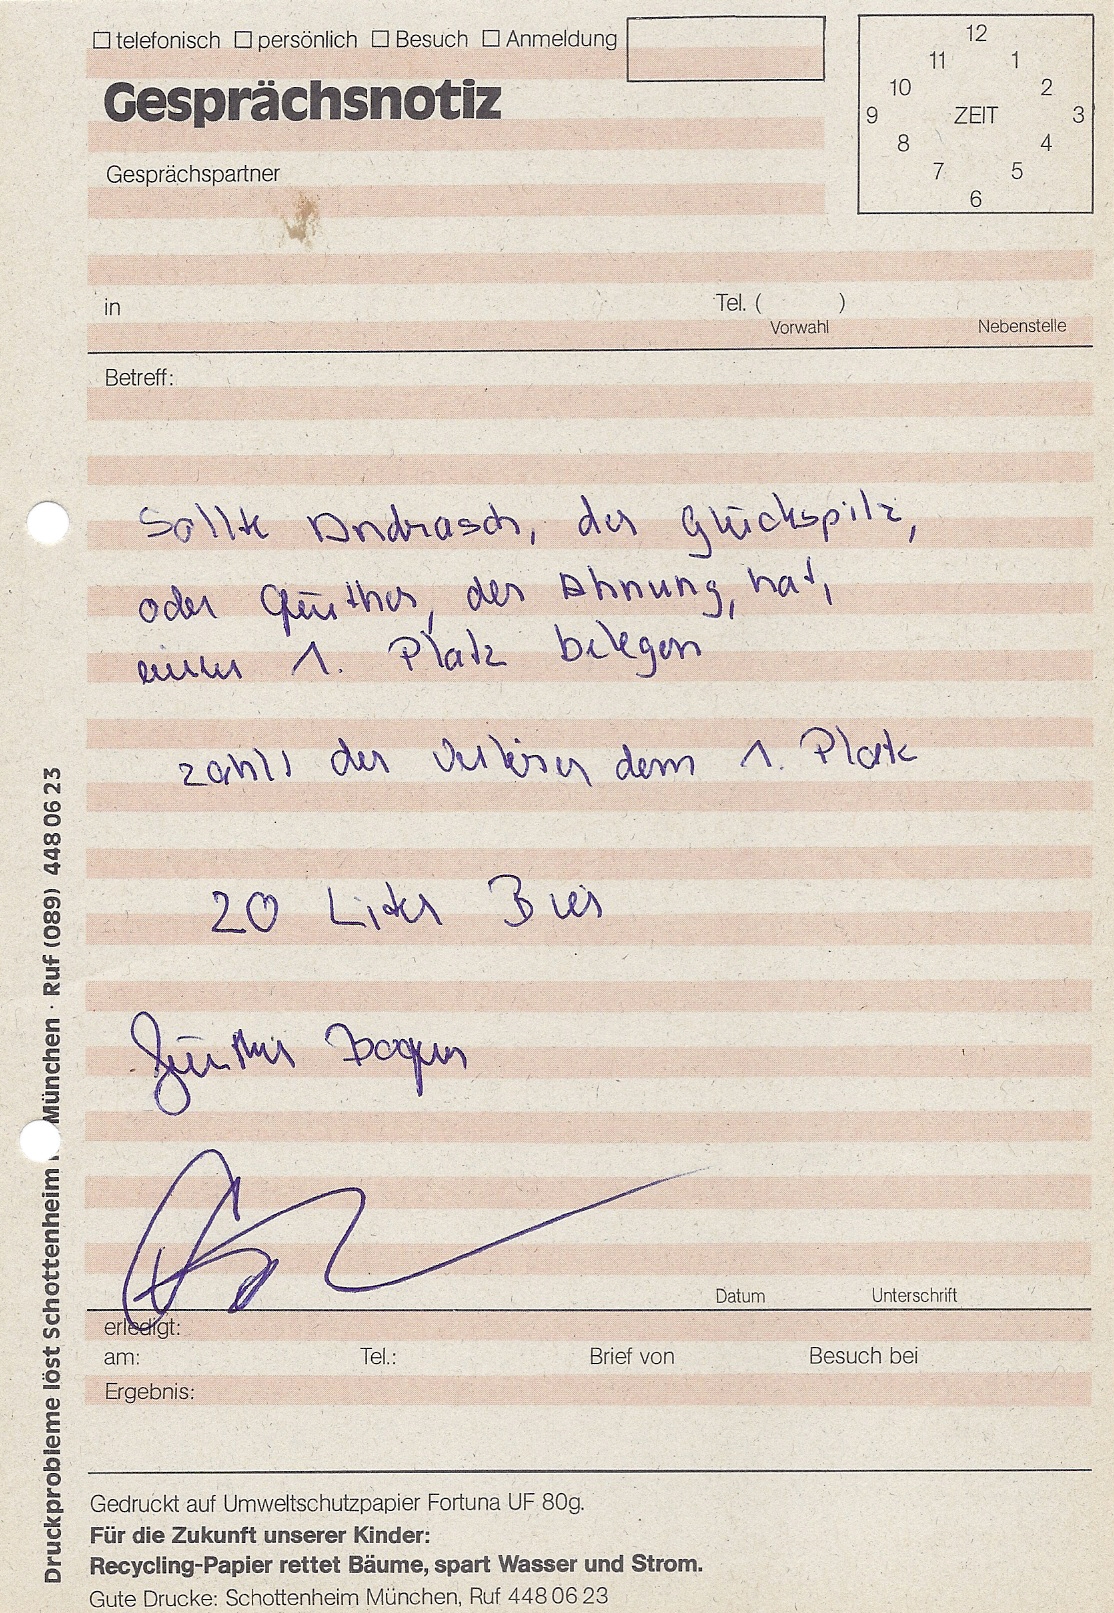 ☐ telefonisch ☐ persönlich ☐ Besuch ☐ Anmeldung
Gesprächsnotiz
Gesprächspartner
12
11 1
10 2
9 ZEIT 3
8 4
7 5
6
in Tel. ( )
Vorwahl Nebenstelle
Betreff:
Sollte Andrasch, der Glückspilz,
oder Günther, der Ahnung, hat,
einen 1. Platz belegen
zahlt der Verlierer dem 1. Platz
20 Liter Bier
Günther
Datum Unterschrift
erledigt:
am: Tel.: Brief von Besuch bei
Ergebnis:
Gedruckt auf Umweltschutzpapier Fortuna UF 80g.
Für die Zukunft unserer Kinder:
Recycling-Papier rettet Bäume, spart Wasser und Strom.
Gute Drucke: Schottenheim München, Ruf 448 06 23
Druckprobleme löst Schottenheim München · Ruf (089) 448 06 23